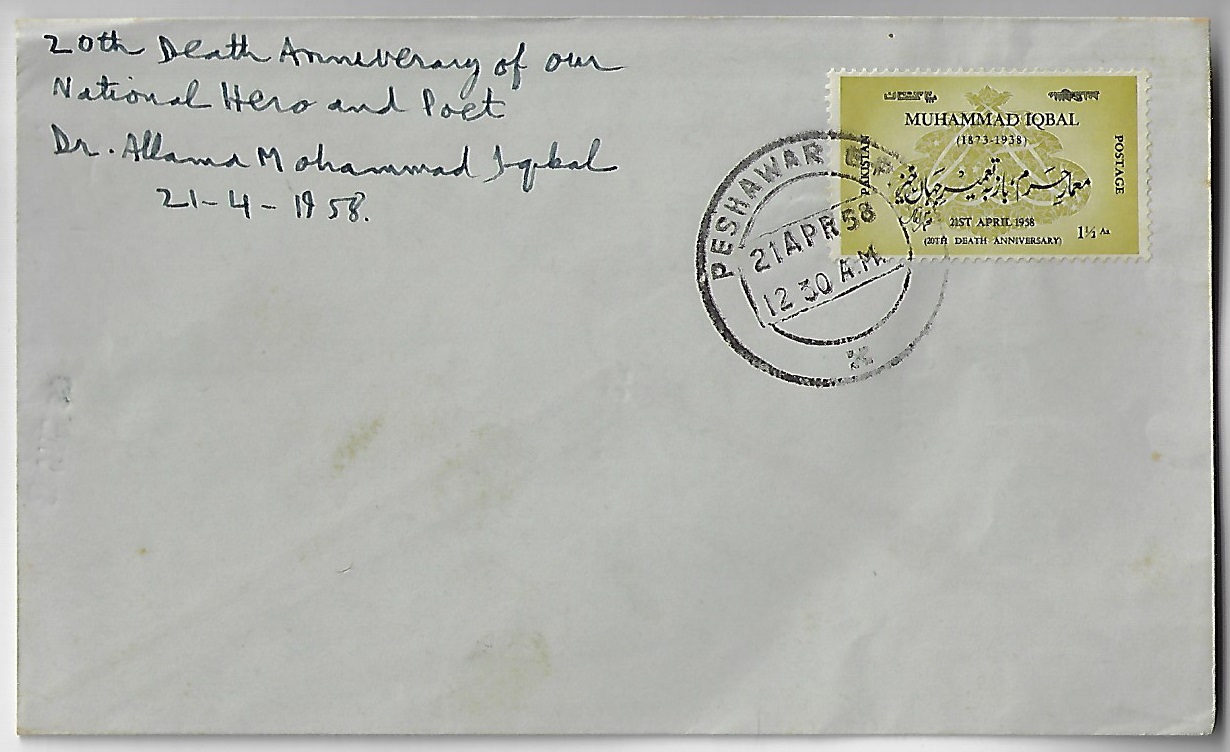 20th Death Anniversary of our
National Hero and Poet
Dr. Allama Mohammad Iqbal
21-4-1958.
پاکستان
পাকিস্তান
MUHAMMAD IQBAL
(1873-1938)
PAKISTAN
POSTAGE
معمارِ حرم باز بہ تعمیرِ جہاں خیز
21ST APRIL 1958
(20TH DEATH ANNIVERSARY)
1½ As
PESHAWAR G.P.
21 APR 58
12 30 A.M.